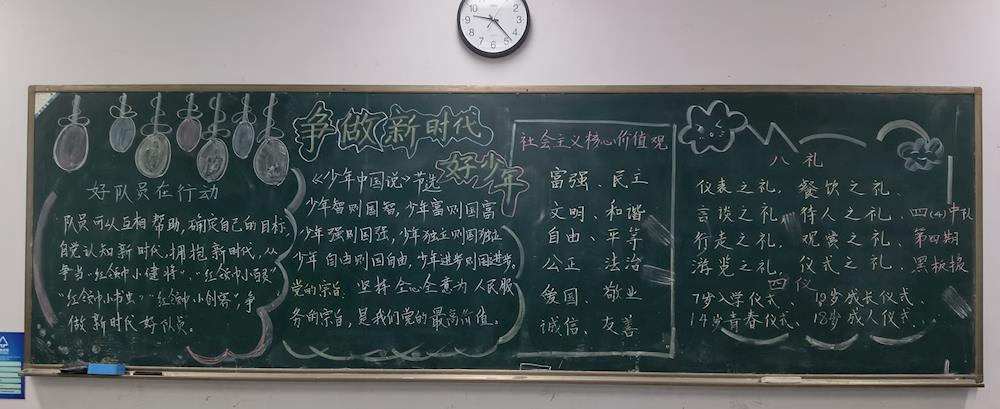 争做新时代
好少年
好队员在行动
队员可以互相帮助,确定自己的目标,
自觉认知新时代,拥抱新时代,从
争当"红领巾小健将"、"红领巾小百灵"
"红领巾小书虫"、"红领巾小创客",争
做新时代好队员。
《少年中国说》节选
少年智则国智,少年富则国富
少年强则国强,少年独立则国独立
少年自由则国自由,少年进步则国进步。
党的宗旨:坚持全心全意为人民服
务的宗旨,是我们党的最高价值。
社会主义核心价值观
富强、民主
文明、和谐
自由、平等
公正 法治
爱国、敬业
诚信、友善
八礼
仪表之礼,餐饮之礼、
言谈之礼,待人之礼、
行走之礼、观赏之礼、
游览之礼、仪式之礼、
四仪
7岁入学仪式、10岁成长仪式、
14岁青春仪式、18岁成人仪式...
四(4)中队
第四期
黑板报